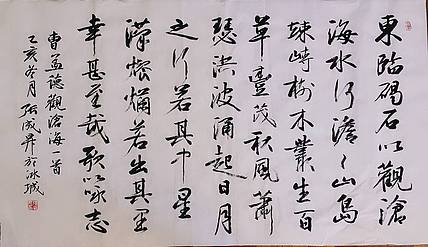 東臨碣石以觀滄
海水何澹々山島
竦峙樹木叢生百
草豐茂秋風蕭
瑟洪波涌起日月
之行若其中星
漢燦爛若出其里
幸甚至哉歌以詠志
曹孟德觀滄海一首
亥冬月張成於冰城